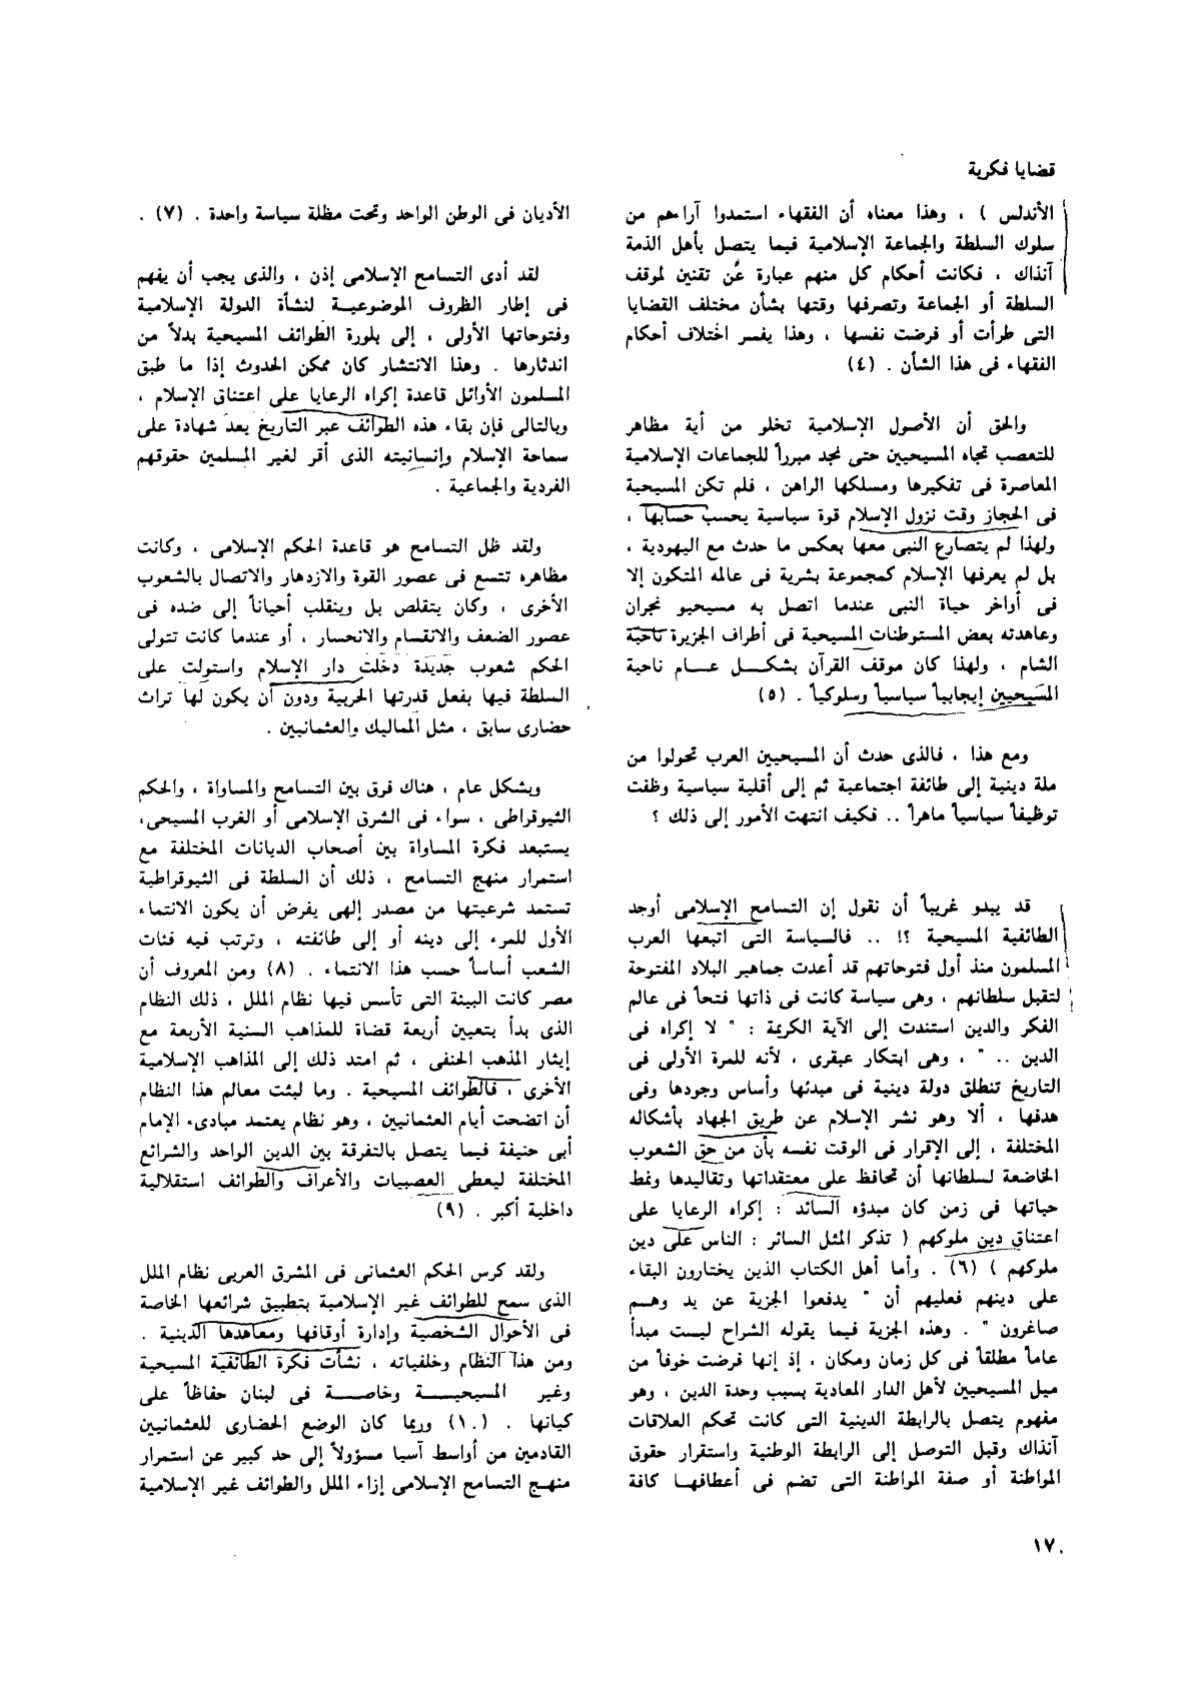 قضايا فكرية
الأندلس ) ، وهذا معناه أن الفقهاء استمدوا آراءهم من
سلوك السلطة والجماعة الإسلامية فيما يتصل بأهل الذمة
آنذاك ، فكانت أحكام كل منهم عبارة عن تقنين لموقف
السلطة أو الجماعة وتصرفها وقتها بشأن مختلف القضايا
التى طرأت أو فرضت نفسها ، وهذا يفسر اختلاف أحكام
الفقهاء فى هذا الشأن . (٤)
والحق أن الأصول الإسلامية تخلو من أية مظاهر
للتعصب تجاه المسيحيين حتى نجد مبرراً للجماعات الإسلامية
المعاصرة فى تفكيرها ومسلكها الراهن ، فلم تكن المسيحية
فى الحجاز وقت نزول الإسلام قوة سياسية يحسب حسابها ،
ولهذا لم يتصارع النبى معها بعكس ما حدث مع اليهودية ،
بل لم يعرفها الإسلام كمجموعة بشرية فى عالمه المتكون إلا
فى أواخر حياة النبى عندما اتصل به مسيحيو نجران
وعاهدته بعض المستوطنات المسيحية فى أطراف الجزيرة ناحية
الشام ، ولهذا كان موقف القرآن بشكل عام ناحية
المسيحيين إيجابياً سياسياً وسلوكياً . (٥)
ومع هذا ، فالذى حدث أن المسيحيين العرب تحولوا من
ملة دينية إلى طائفة اجتماعية ثم إلى أقلية سياسية وظفت
توظيفاً سياسياً ماهراً .. فكيف انتهت الأمور إلى ذلك ؟
قد يبدو غريباً أن نقول إن التسامح الإسلامى أوجد
الطائفية المسيحية ؟! .. فالسياسة التى اتبعها العرب
المسلمون منذ أول فتوحاتهم قد أعدت جماهير البلاد المفتوحة
لتقبل سلطانهم ، وهى سياسة كانت فى ذاتها فتحاً فى عالم
الفكر والدين استندت إلى الآية الكريمة : " لا إكراه فى
الدين .. " ، وهى ابتكار عبقرى ، لأنه للمرة الأولى فى
التاريخ تنطلق دولة دينية فى مبدئها وأساس وجودها وفى
هدفها ، ألا وهو نشر الإسلام عن طريق الجهاد بأشكاله
المختلفة ، إلى الإقرار فى الوقت نفسه بأن من حق الشعوب
الخاضعة لسلطانها أن تحافظ على معتقداتها وتقاليدها ونمط
حياتها فى زمن كان مبدؤه السائد : إكراه الرعايا على
اعتناق دين ملوكهم ( تذكر المثل السائر : الناس على دين
ملوكهم ) (٦) . وأما أهل الكتاب الذين يختارون البقاء
على دينهم فعليهم أن " يدفعوا الجزية عن يد وهم
صاغرون " . وهذه الجزية فيما يقوله الشراح ليست مبدأ
عاماً مطلقاً فى كل زمان ومكان ، إذ إنها فرضت خوفاً من
ميل المسيحيين لأهل الدار المعادية بسبب وحدة الدين ، وهو
مفهوم يتصل بالرابطة الدينية التى كانت تحكم العلاقات
آنذاك وقبل التوصل إلى الرابطة الوطنية واستقرار حقوق
المواطنة أو صفة المواطنة التى تضم فى أعطافها كافة
الأديان فى الوطن الواحد وتحت مظلة سياسة واحدة . (٧) .
لقد أدى التسامح الإسلامى إذن ، والذى يجب أن يفهم
فى إطار الظروف الموضوعية لنشأة الدولة الإسلامية
وفتوحاتها الأولى ، إلى بلورة الطوائف المسيحية بدلاً من
اندثارها . وهذا الانتشار كان ممكن الحدوث إذا ما طبق
المسلمون الأوائل قاعدة إكراه الرعايا على اعتناق الإسلام ،
وبالتالى فإن بقاء هذه الطوائف عبر التاريخ يعد شهادة على
سماحة الإسلام وإنسانيته الذى أقر لغير المسلمين حقوقهم
الفردية والجماعية .
ولقد ظل التسامح هو قاعدة الحكم الإسلامى ، وكانت
مظاهره تتسع فى عصور القوة والازدهار والاتصال بالشعوب
الأخرى ، وكان يتقلص بل وينقلب أحياناً إلى ضده فى
عصور الضعف والانقسام والانحسار ، أو عندما كانت تتولى
الحكم شعوب جديدة دخلت دار الإسلام واستولت على
السلطة فيها بفعل قدرتها الحربية ودون أن يكون لها تراث
حضارى سابق ، مثل المماليك والعثمانيين .
وبشكل عام ، هناك فرق بين التسامح والمساواة ، والحكم
الثيوقراطى ، سواء فى الشرق الإسلامى أو الغرب المسيحى،
يستبعد فكرة المساواة بين أصحاب الديانات المختلفة مع
استمرار منهج التسامح ، ذلك أن السلطة فى الثيوقراطية
تستمد شرعيتها من مصدر إلهى يفرض أن يكون الانتماء
الأول للمرء إلى دينه أو إلى طائفته ، وترتب فيه فئات
الشعب أساساً حسب هذا الانتماء . (٨) ومن المعروف أن
مصر كانت البيئة التى تأسس فيها نظام الملل ، ذلك النظام
الذى بدأ بتعيين أربعة قضاة للمذاهب السنية الأربعة مع
إيثار المذهب الحنفى ، ثم امتد ذلك إلى المذاهب الإسلامية
الأخرى ، فالطوائف المسيحية . وما لبثت معالم هذا النظام
أن اتضحت أيام العثمانيين ، وهو نظام يعتمد مبادىء الإمام
أبى حنيفة فيما يتصل بالتفرقة بين الدين الواحد والشرائع
المختلفة ليعطى العصبيات والأعراف والطوائف استقلالية
داخلية أكبر . (٩)
ولقد كرس الحكم العثمانى فى المشرق العربى نظام الملل
الذى سمح للطوائف غير الإسلامية بتطبيق شرائعها الخاصة
فى الأحوال الشخصية وإدارة أوقافها ومعاهدها الدينية .
ومن هذا النظام وخلفياته ، نشأت فكرة الطائفية المسيحية
وغير المسيحية وخاصة فى لبنان حفاظاً على
كيانها . (١٠) وربما كان الوضع الحضارى للعثمانيين
القادمين من أواسط آسيا مسؤولاً إلى حد كبير عن استمرار
منهج التسامح الإسلامى إزاء الملل والطوائف غير الإسلامية
١٧٠